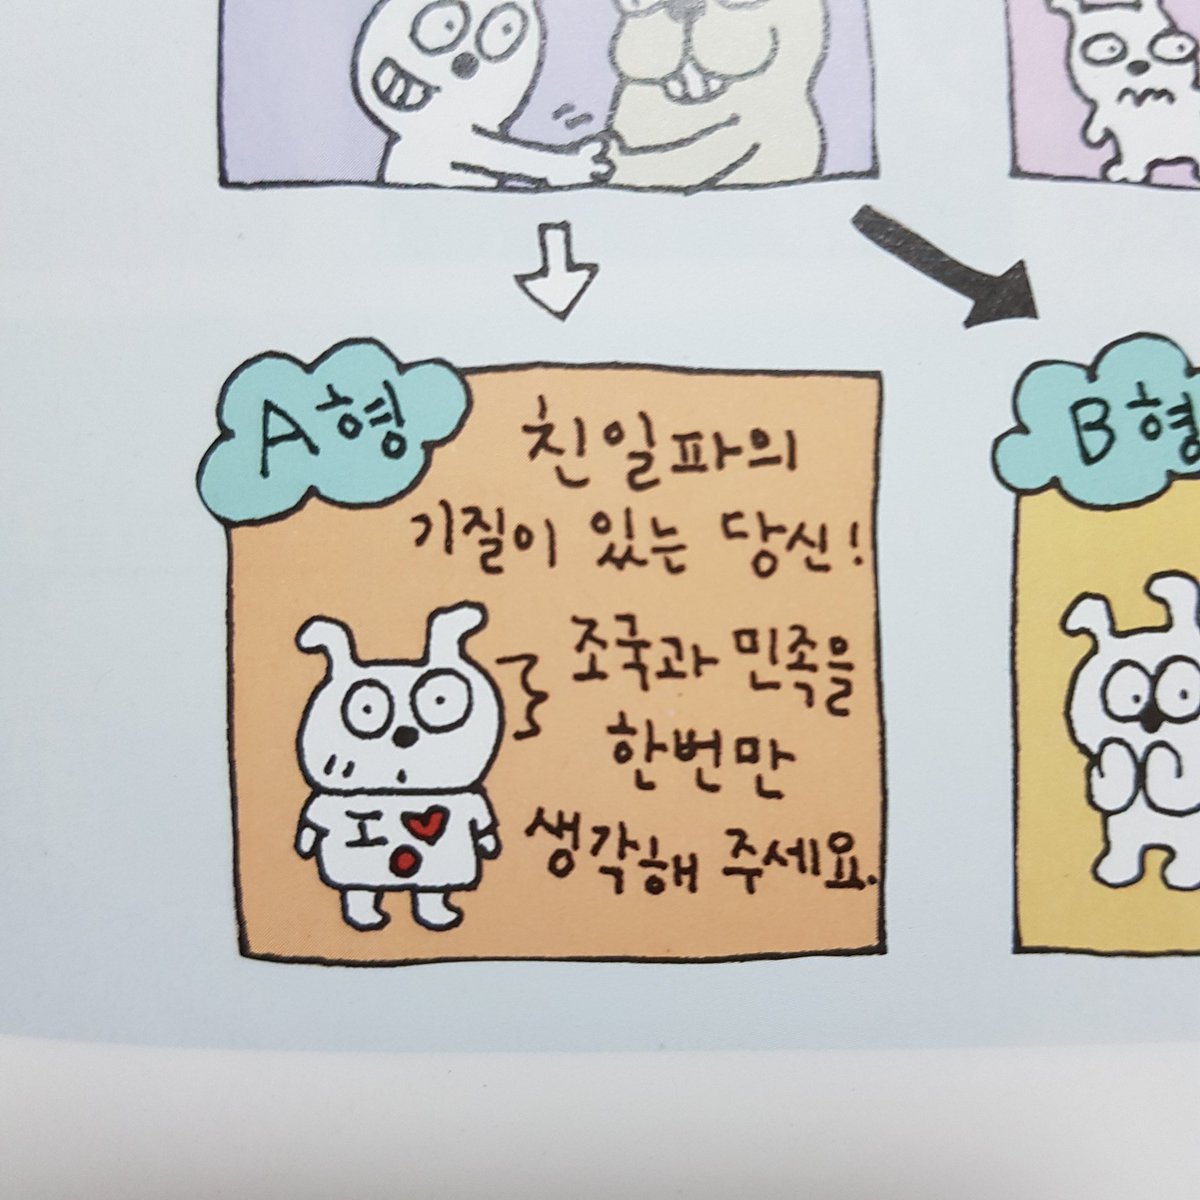 A형
친일파의
기질이 있는 당신!
조국과 민족을
한번만
생각해 주세요.
I
B형